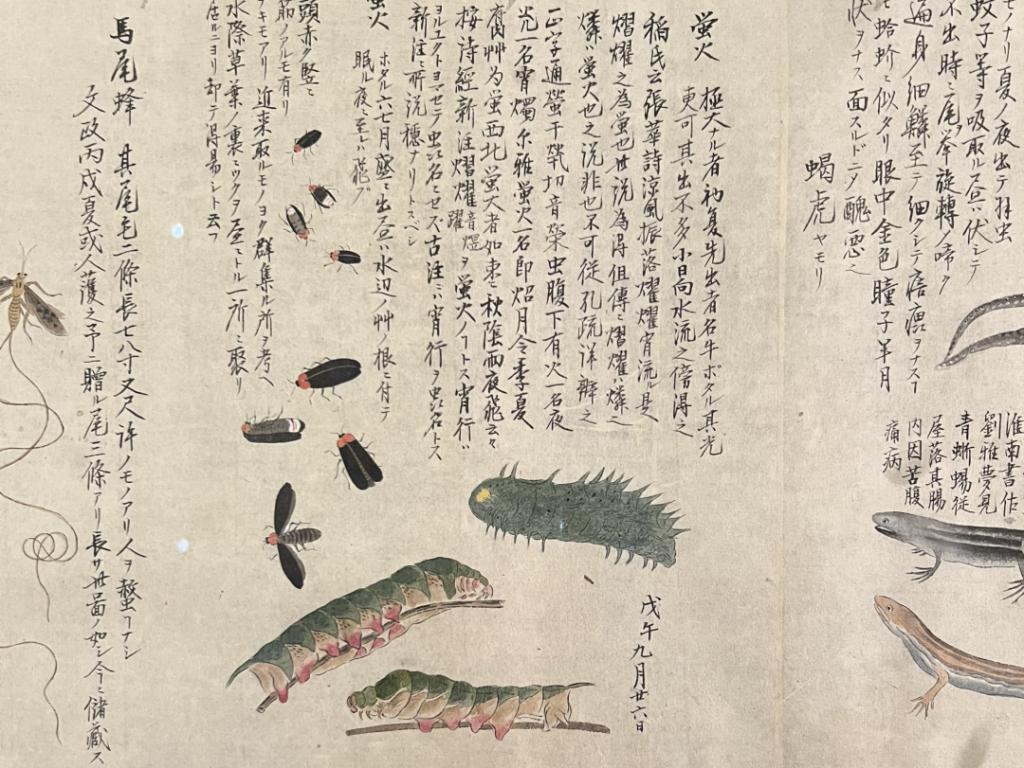 モノナリ夏ノ夜出テ羽虫
蚊子等ヲ吸取ル昼ハ伏シテ
不出時ニ尾ヲ挙旋轉ノ啼ク
遍身ノ細鱗至テ細クシテ
モ蛤蚧ニ似タリ眼中金色瞳子半月
伏ヲナス面スルドニ〆醜悪之
蝎虎 ヤモリ
淮南書作
劉雅夢見
青蜥蜴従
屋落其腸
内因苦腹
痛病
螢火 極大ナル者
更可其出不多小日向水流之傍得之
稲氏云張華詩涼風振落熠燿宵流ル是
熠燿之為螢也
燐ハ螢火也之説非也不可從孔疏詳辨之
正字通螢于㷀切音榮虫腹下有火一名夜
光一名宵燭尓雅螢火一名即炤月令季夏
腐艸为螢西北螢大者如棗秋陰雨夜飛云々
按詩經新注熠燿音ヲ螢火ノ一トス宵行ハ
ヨルユクトヨマセテ虫ノ名トセズ古注ハ宵行ヲ虫名トス
新注ニ所説穏ナリトスベシ
螢火 ホタル六七月盛ニ出昼ハ水辺ノ艸ノ根ニ付テ
眠ル夜ニ至レハ飛ブ
頭赤ク竪ニ
筋ノアルモ有リ
近来取ルモノヨク群集ル所ヲ考ヘ
水際草葉ノ裏ニツクヲ昼ニトル一所ニ聚リ
居ルニヨリ却テ得易シト云フ
戊午九月廿六日
馬尾蜂 其尾毛二條長七八寸又尺許ノモノアリ人ヲ螫フナシ
文政丙戌夏或人獲之予ニ贈ル尾三條アリ長サ此圖ノ如シ今ニ儲藏ス